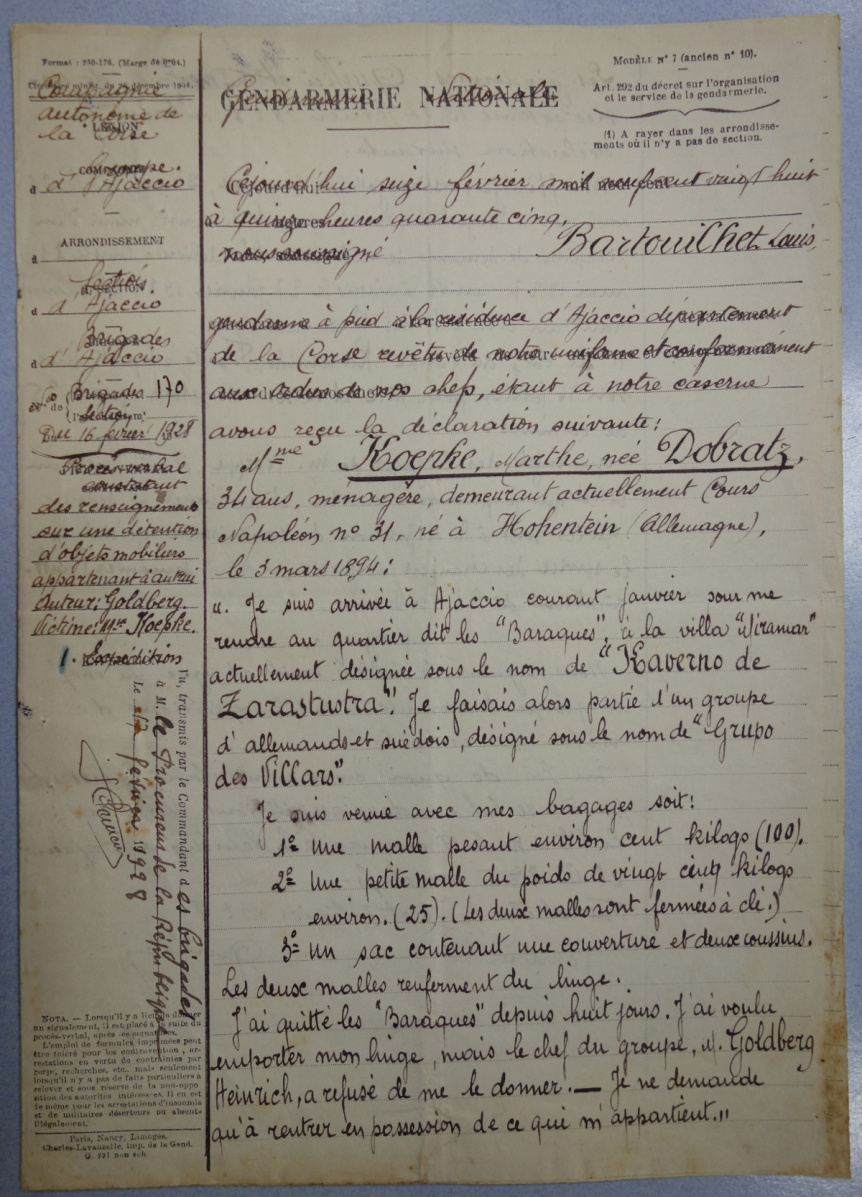 Format : 250-176. (Marge de 0m04.)
Compagnie
autonome de
LÉGION
la Corse
COMPAGNIE
d'Ajaccio
ARRONDISSEMENT
Section
d'Ajaccio
Brigades
d'Ajaccio
Nos de Brigades 170
section
Du 16 février 1928
Procès-verbal
constatant
des renseignements
sur une détention
d'objets mobiliers
appartenant à autrui
Auteur: Goldberg.
Victime: Mme Koepke.
1. Expédition
Vu, transmis par le Commandant des brigades
à M. le Procureur de la République
Le 17 février 1928
NOTA. — Lorsqu'il y a lieu de donner
un signalement, il est placé à la suite du
procès-verbal, après les signatures.
L'emploi de formules imprimées peut
être toléré pour les contraventions, arrestations
en vertu de contraintes par
corps, recherches, etc., mais seulement
lorsqu'il n'y a pas de faits particuliers à
relever et sous réserve de la non-opposition
des autorités intéressées. Il en est
de même pour les arrestations d'insoumis
et de militaires déserteurs ou absents
illégalement.
Paris, Nancy, Limoges.
Charles-Lavauzelle, imp. de la Gend.
G. 221 non sch.
MODÈLE N° 7 (ancien n° 10).
Art. 292 du décret sur l'organisation
et le service de la gendarmerie.
(1) A rayer dans les arrondissements
où il n'y a pas de section.
GENDARMERIE NATIONALE
Cejourd'hui seize février mil neuf cent vingt huit
à quinze heures quarante cinq,
nous soussigné Bartouilhet, Louis,
gendarme à pied à la résidence d'Ajaccio département
de la Corse revêtu de notre uniforme et conformément
aux ordres de nos chefs, étant à notre caserne
avons reçu la déclaration suivante:
Mme Koepke, Marthe, née Dobratz,
34 ans, ménagère, demeurant actuellement Cours
Napoléon n° 31, né à Hohentein (Allemagne),
le 3 mars 1894:
". Je suis arrivée à Ajaccio courant janvier pour me
rendre au quartier dit les "Baraques", à la villa "Miramar"
actuellement désignée sous le nom de "Kaverno de
Zarastustra". Je faisais alors partie d'un groupe
d'allemands et suédois, désigné sous le nom de "Grupo
des Villars".
Je suis venue avec mes bagages soit:
1° une malle pesant environ cent kilogs (100).
2° Une petite malle du poids de vingt cinq kilogs
environ. (25). (Les deux malles sont fermées à clé.)
3° Un sac contenant une couverture et deux coussins.
Les deux malles renferment du linge.
J'ai quitté les "Baraques" depuis huit jours. J'ai voulu
emporter mon linge, mais le chef du groupe, M. Goldberg
Heinrich, a refusé de me le donner. — Je ne demande
qu'à rentrer en possession de ce qui m'appartient."